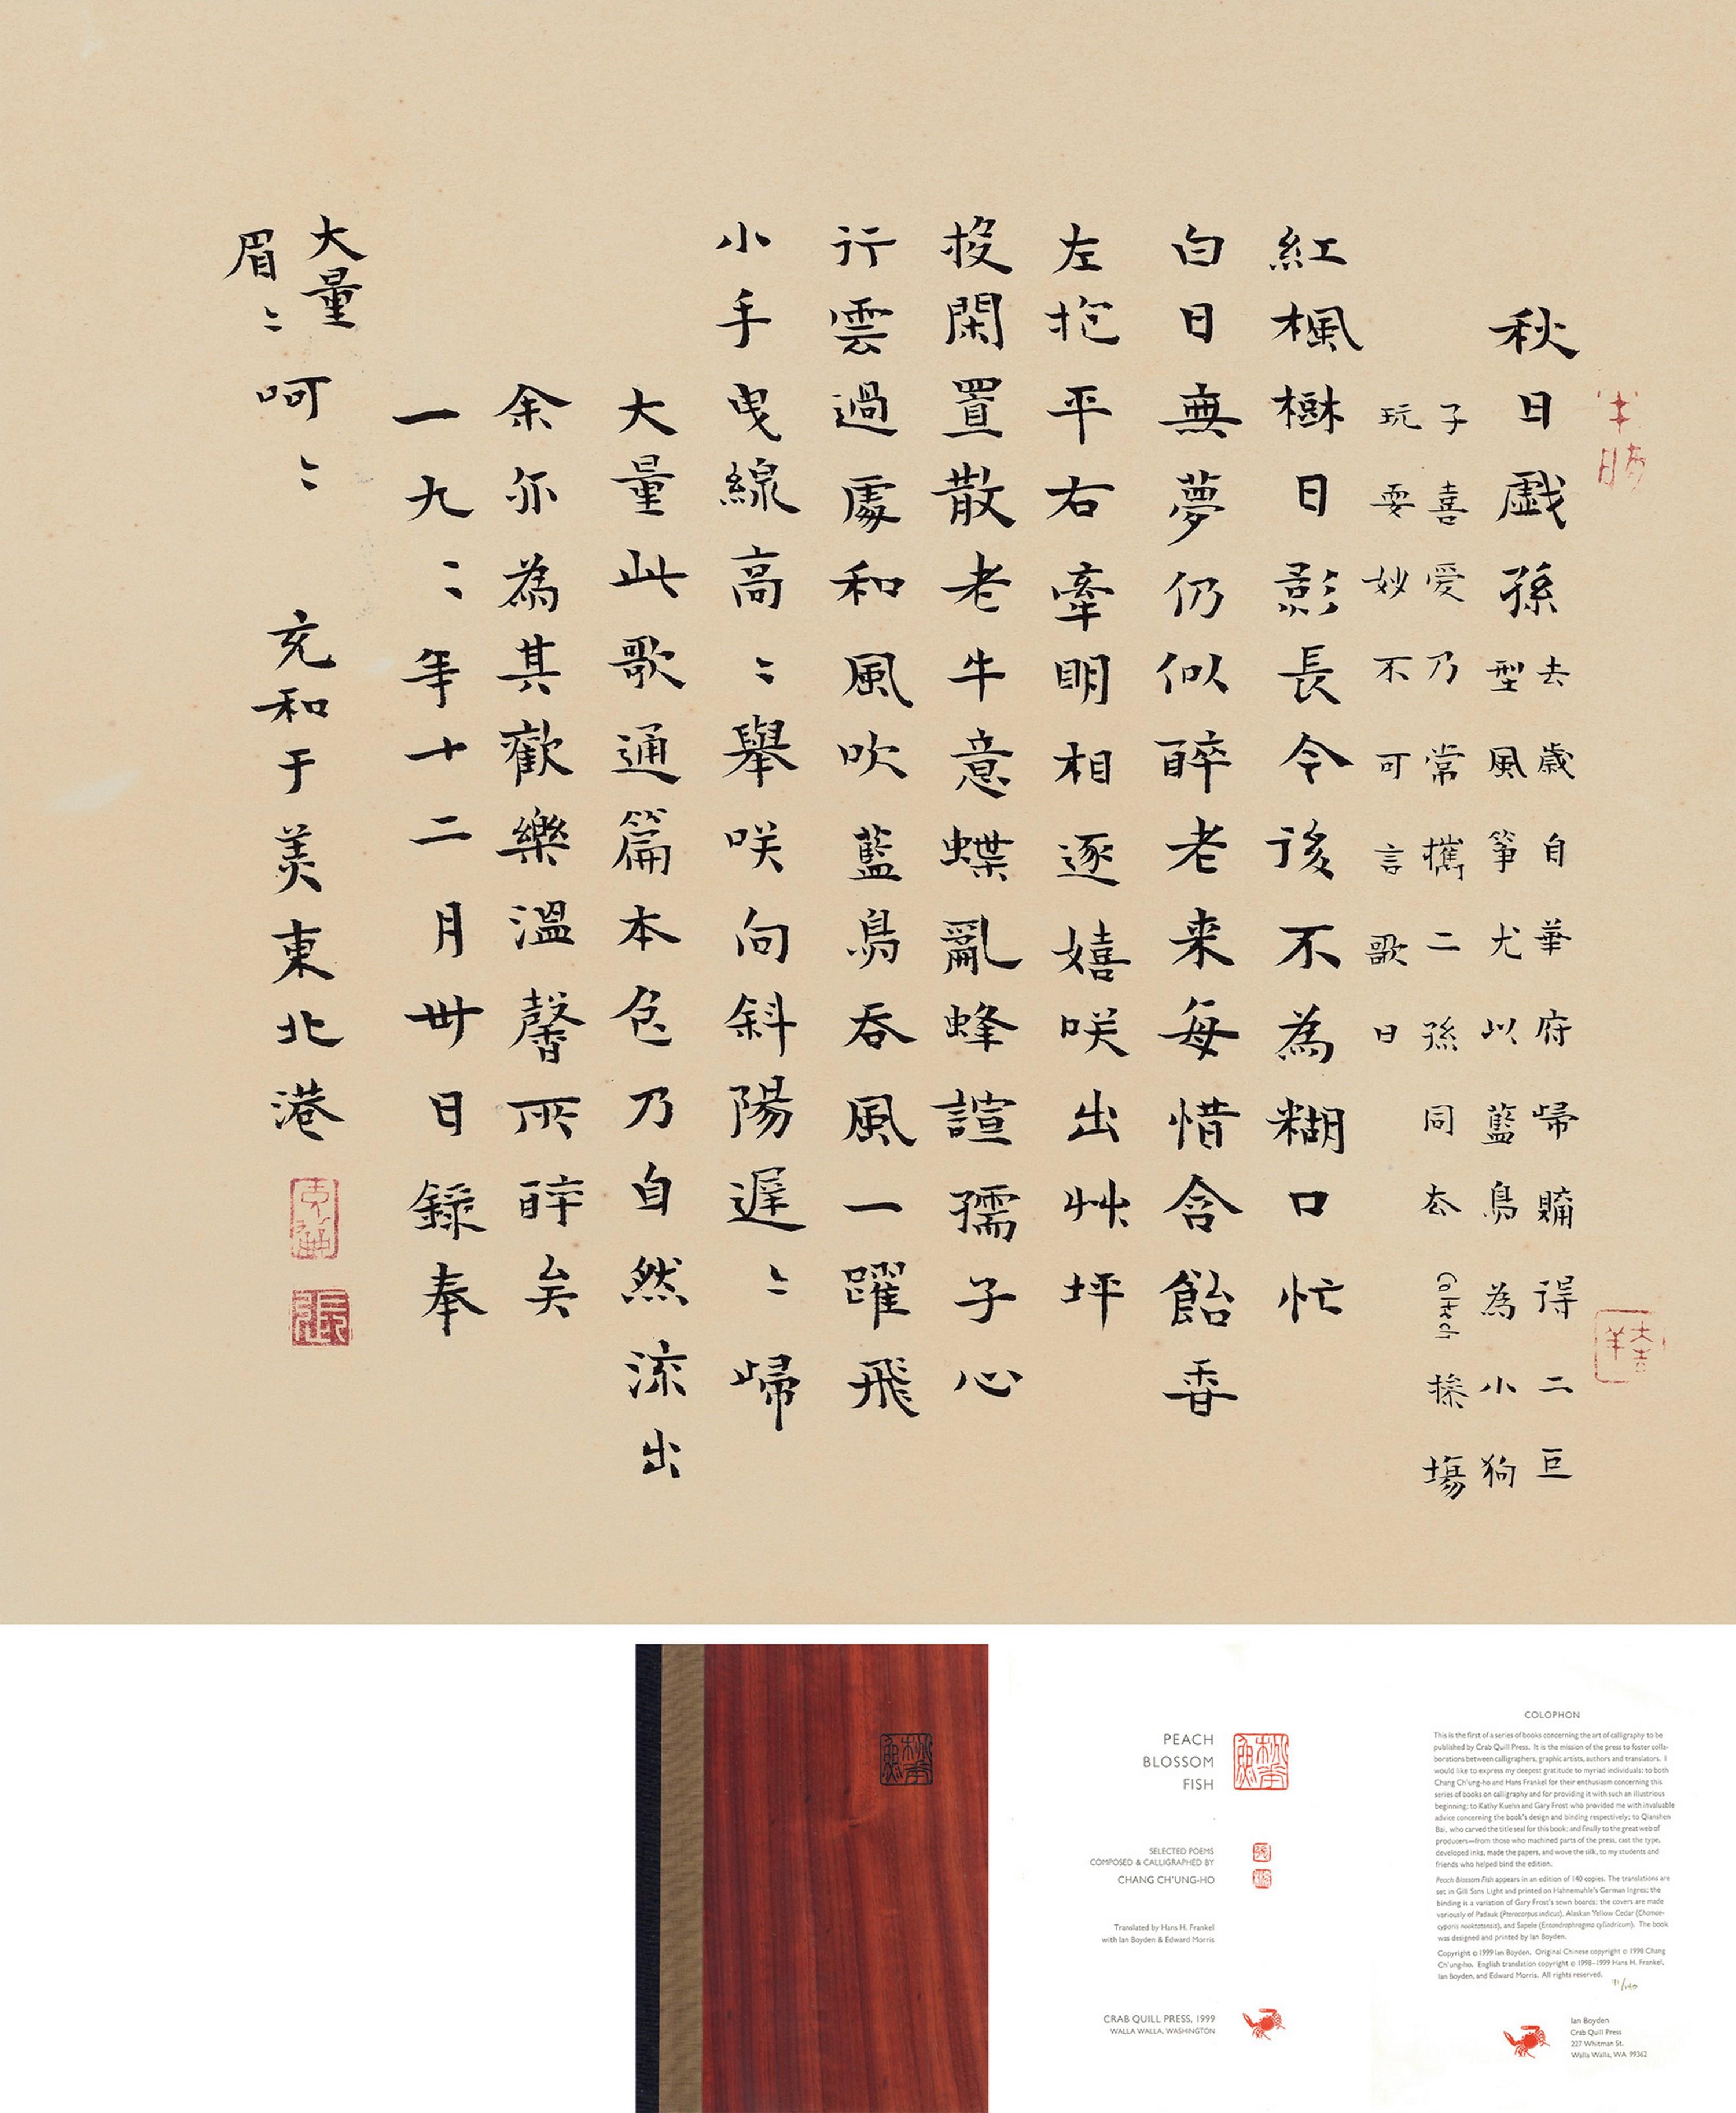 秋日戲孫
去歲自華府歸購得二巨
型風箏尤以藍鳥為小狗
子喜愛乃常攜二孫同去Coltech操場
玩耍妙不可言歌曰
紅楓樹日影長令後不為糊口忙
白日無夢仍似醉老来每惜含飴香
左抱平右牽明相逐嬉咲出艸坪
投閑置散老牛意蝶亂蜂諠孺子心
行雲過處和風吹藍鳥吞風一躍飛
小手曳線高〻舉咲向斜陽遲〻歸
大量此歌通篇本色乃自然流出
余亦為其歡樂溫馨所醉矣
一九〻年十二月卅日錄奉
大量
眉〻呵〻
充和于美東北港
PEACH
BLOSSOM
FISH
SELECTED POEMS
COMPOSED & CALLIGRAPHED BY
CHANG CH'UNG-HO
Translated by Hans H. Frankel
with Ian Boyden & Edward Morris
CRAB QUILL PRESS, 1999
WALLA WALLA, WASHINGTON
COLOPHON
This is the first of a series of books concerning the art of calligraphy to be
published by Crab Quill Press. It is the mission of the press to foster colla-
borations between calligraphers, graphic artists, authors and translators. I
would like to express my deepest gratitude to myriad individuals: to both
Chang Ch'ung-ho and Hans Frankel for their enthusiasm concerning this
series of books on calligraphy and for providing it with such an illustrious
beginning; to Kathy Kuehn and Gary Frost who provided me with invaluable
advice concerning the book's design and binding respectively; to Qianshen
Bai, who carved the title seal for this book; and finally to the great web of
producers—from those who machined parts of the press, cast the type,
developed inks, made the papers, and wove the silk, to my students and
friends who helped bind the edition.
Peach Blossom Fish appears in an edition of 140 copies. The translations are
set in Gill Sans Light and printed on Hahnemuhle's German Ingres; the
binding is a variation of Gary Frost's sewn boards; the covers are made
variously of Padauk (Pterocarpus indicus), Alaskan Yellow Cedar (Chamae-
cyparis nootkatensis), and Sapele (Entandrophragma cylindricum). The book
was designed and printed by Ian Boyden.
Copyright © 1999 Ian Boyden. Original Chinese copyright © 1998 Chang
Ch'ung-ho. English translation copyright © 1998–1999 Hans H. Frankel,
Ian Boyden, and Edward Morris. All rights reserved.
Ian Boyden
Crab Quill Press
227 Whitman St.
Walla Walla, WA 99362